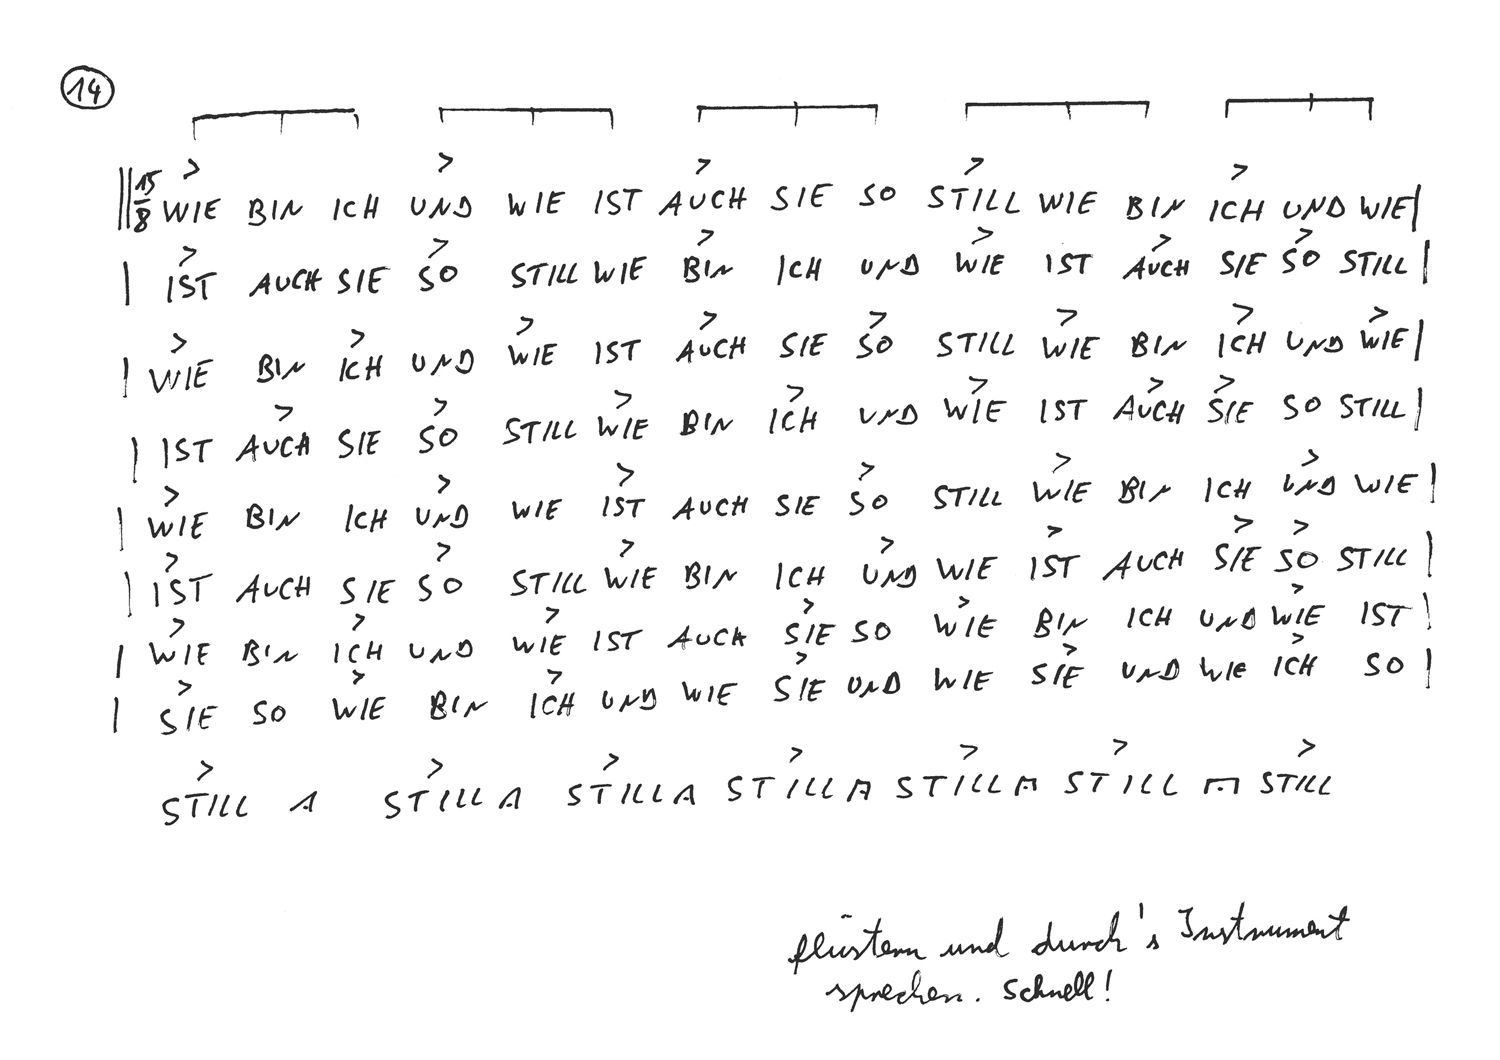 14
15/8 WIE BIN ICH UND WIE IST AUCH SIE SO STILL WIE BIN ICH UND WIE
IST AUCH SIE SO STILL WIE BIN ICH UND WIE IST AUCH SIE SO STILL
WIE BIN ICH UND WIE IST AUCH SIE SO STILL WIE BIN ICH UND WIE
IST AUCH SIE SO STILL WIE BIN ICH UND WIE IST AUCH SIE SO STILL
WIE BIN ICH UND WIE IST AUCH SIE SO STILL WIE BIN ICH UND WIE
IST AUCH SIE SO STILL WIE BIN ICH UND WIE IST AUCH SIE SO STILL
WIE BIN ICH UND WIE IST AUCH SIE SO WIE BIN ICH UND WIE IST
SIE SO WIE BIN ICH UND WIE SIE UND WIE SIE UND WIE ICH SO
STILL A STILL A STILL A STILL A STILL A STILL A STILL
flüstern und durch's Instrument
sprechen. Schnell!